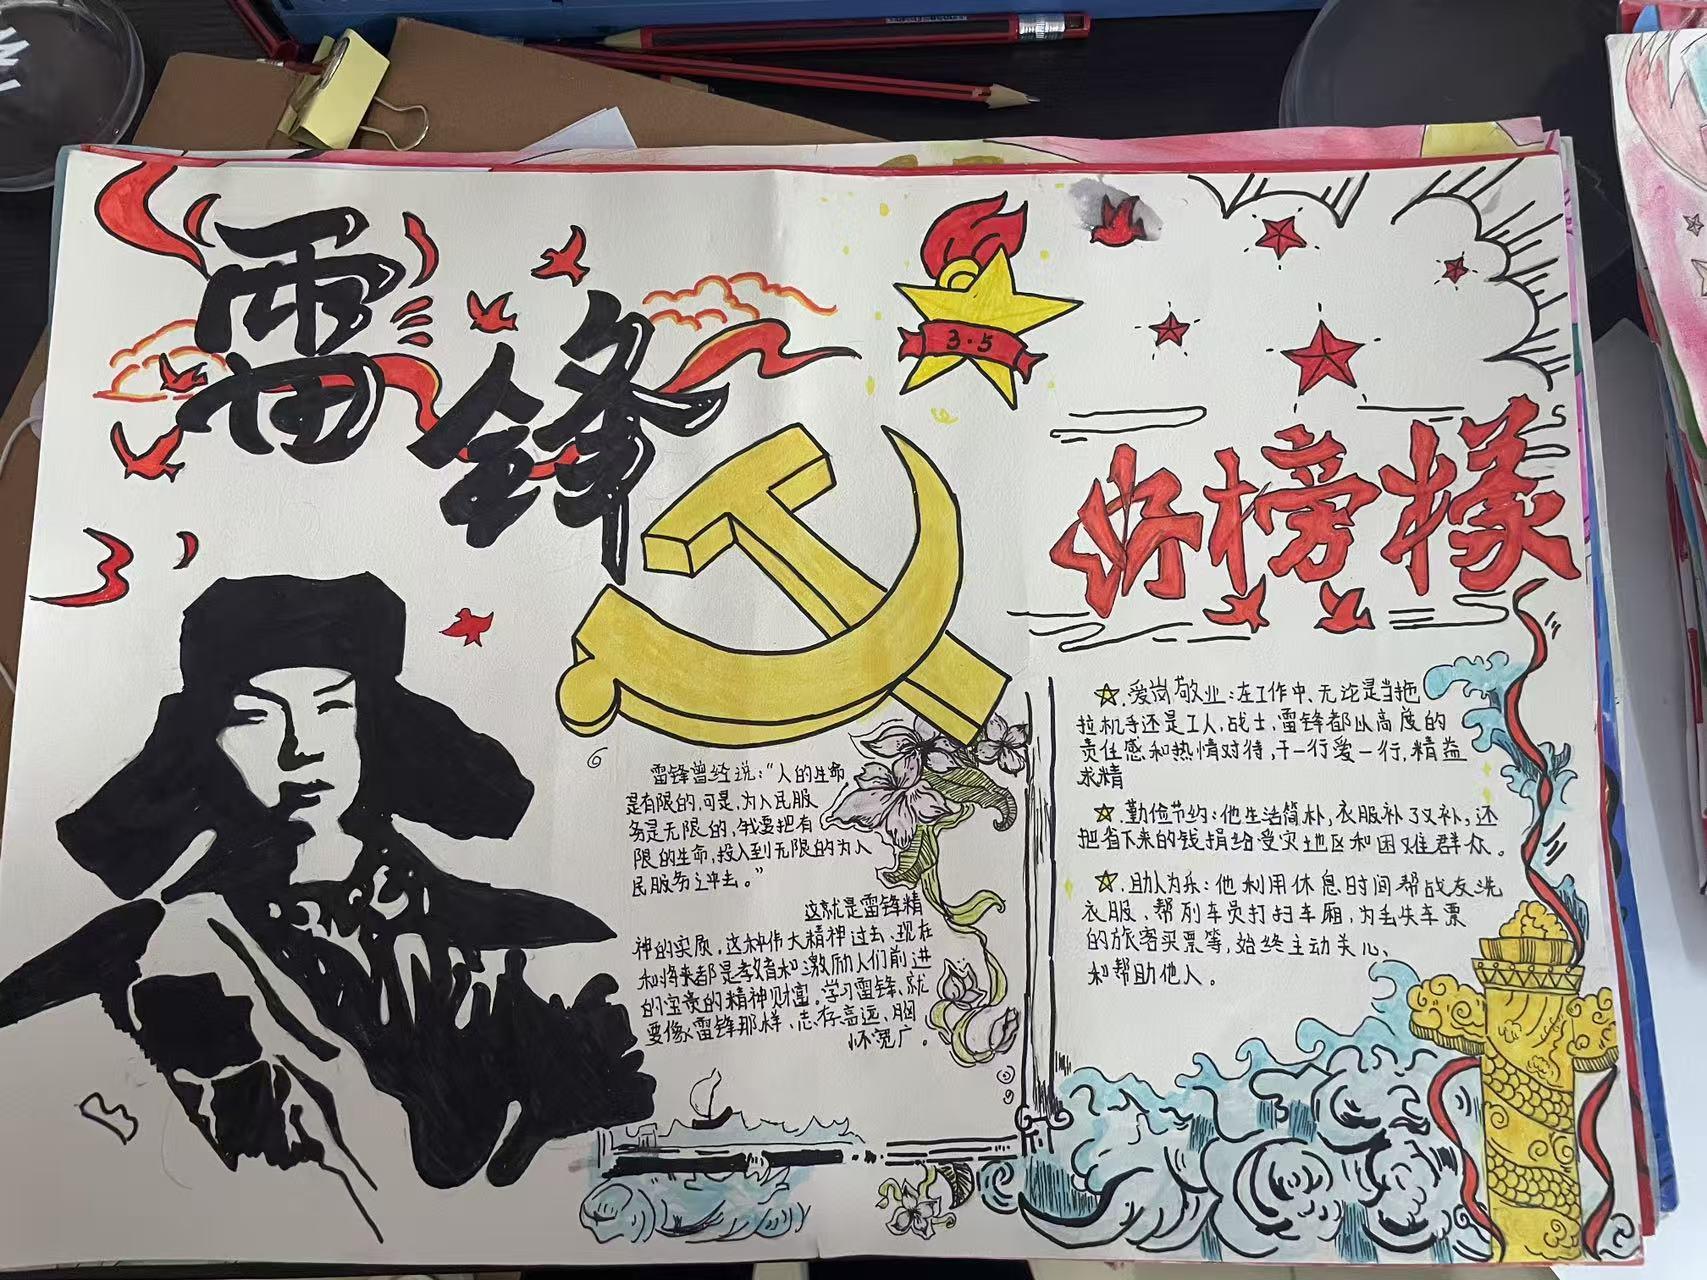 雷锋
3·5
好榜样
雷锋曾经说:“人的生命
是有限的,可是,为人民服
务是无限的,我要把有
限的生命,投入到无限的为人
民服务之中去。”
这就是雷锋精
神的实质,这种伟大精神过去、现在
和将来都是教育和激励人们前进
的宝贵的精神财富。学习雷锋、就
要像雷锋那样、志存高远、胸
怀宽广。
爱岗敬业:在工作中、无论是当拖
拉机手还是工人,战士,雷锋都以高度的
责任感和热情对待,干一行爱一行,精益
求精
勤俭节约:他生活简朴,衣服补了又补,还
把省下来的钱捐给受灾地区和困难群众。
助人为乐:他利用休息时间帮战友洗
衣服、帮列车员打扫车厢,为丢失车票
的旅客买票等,始终主动关心、
和帮助他人。